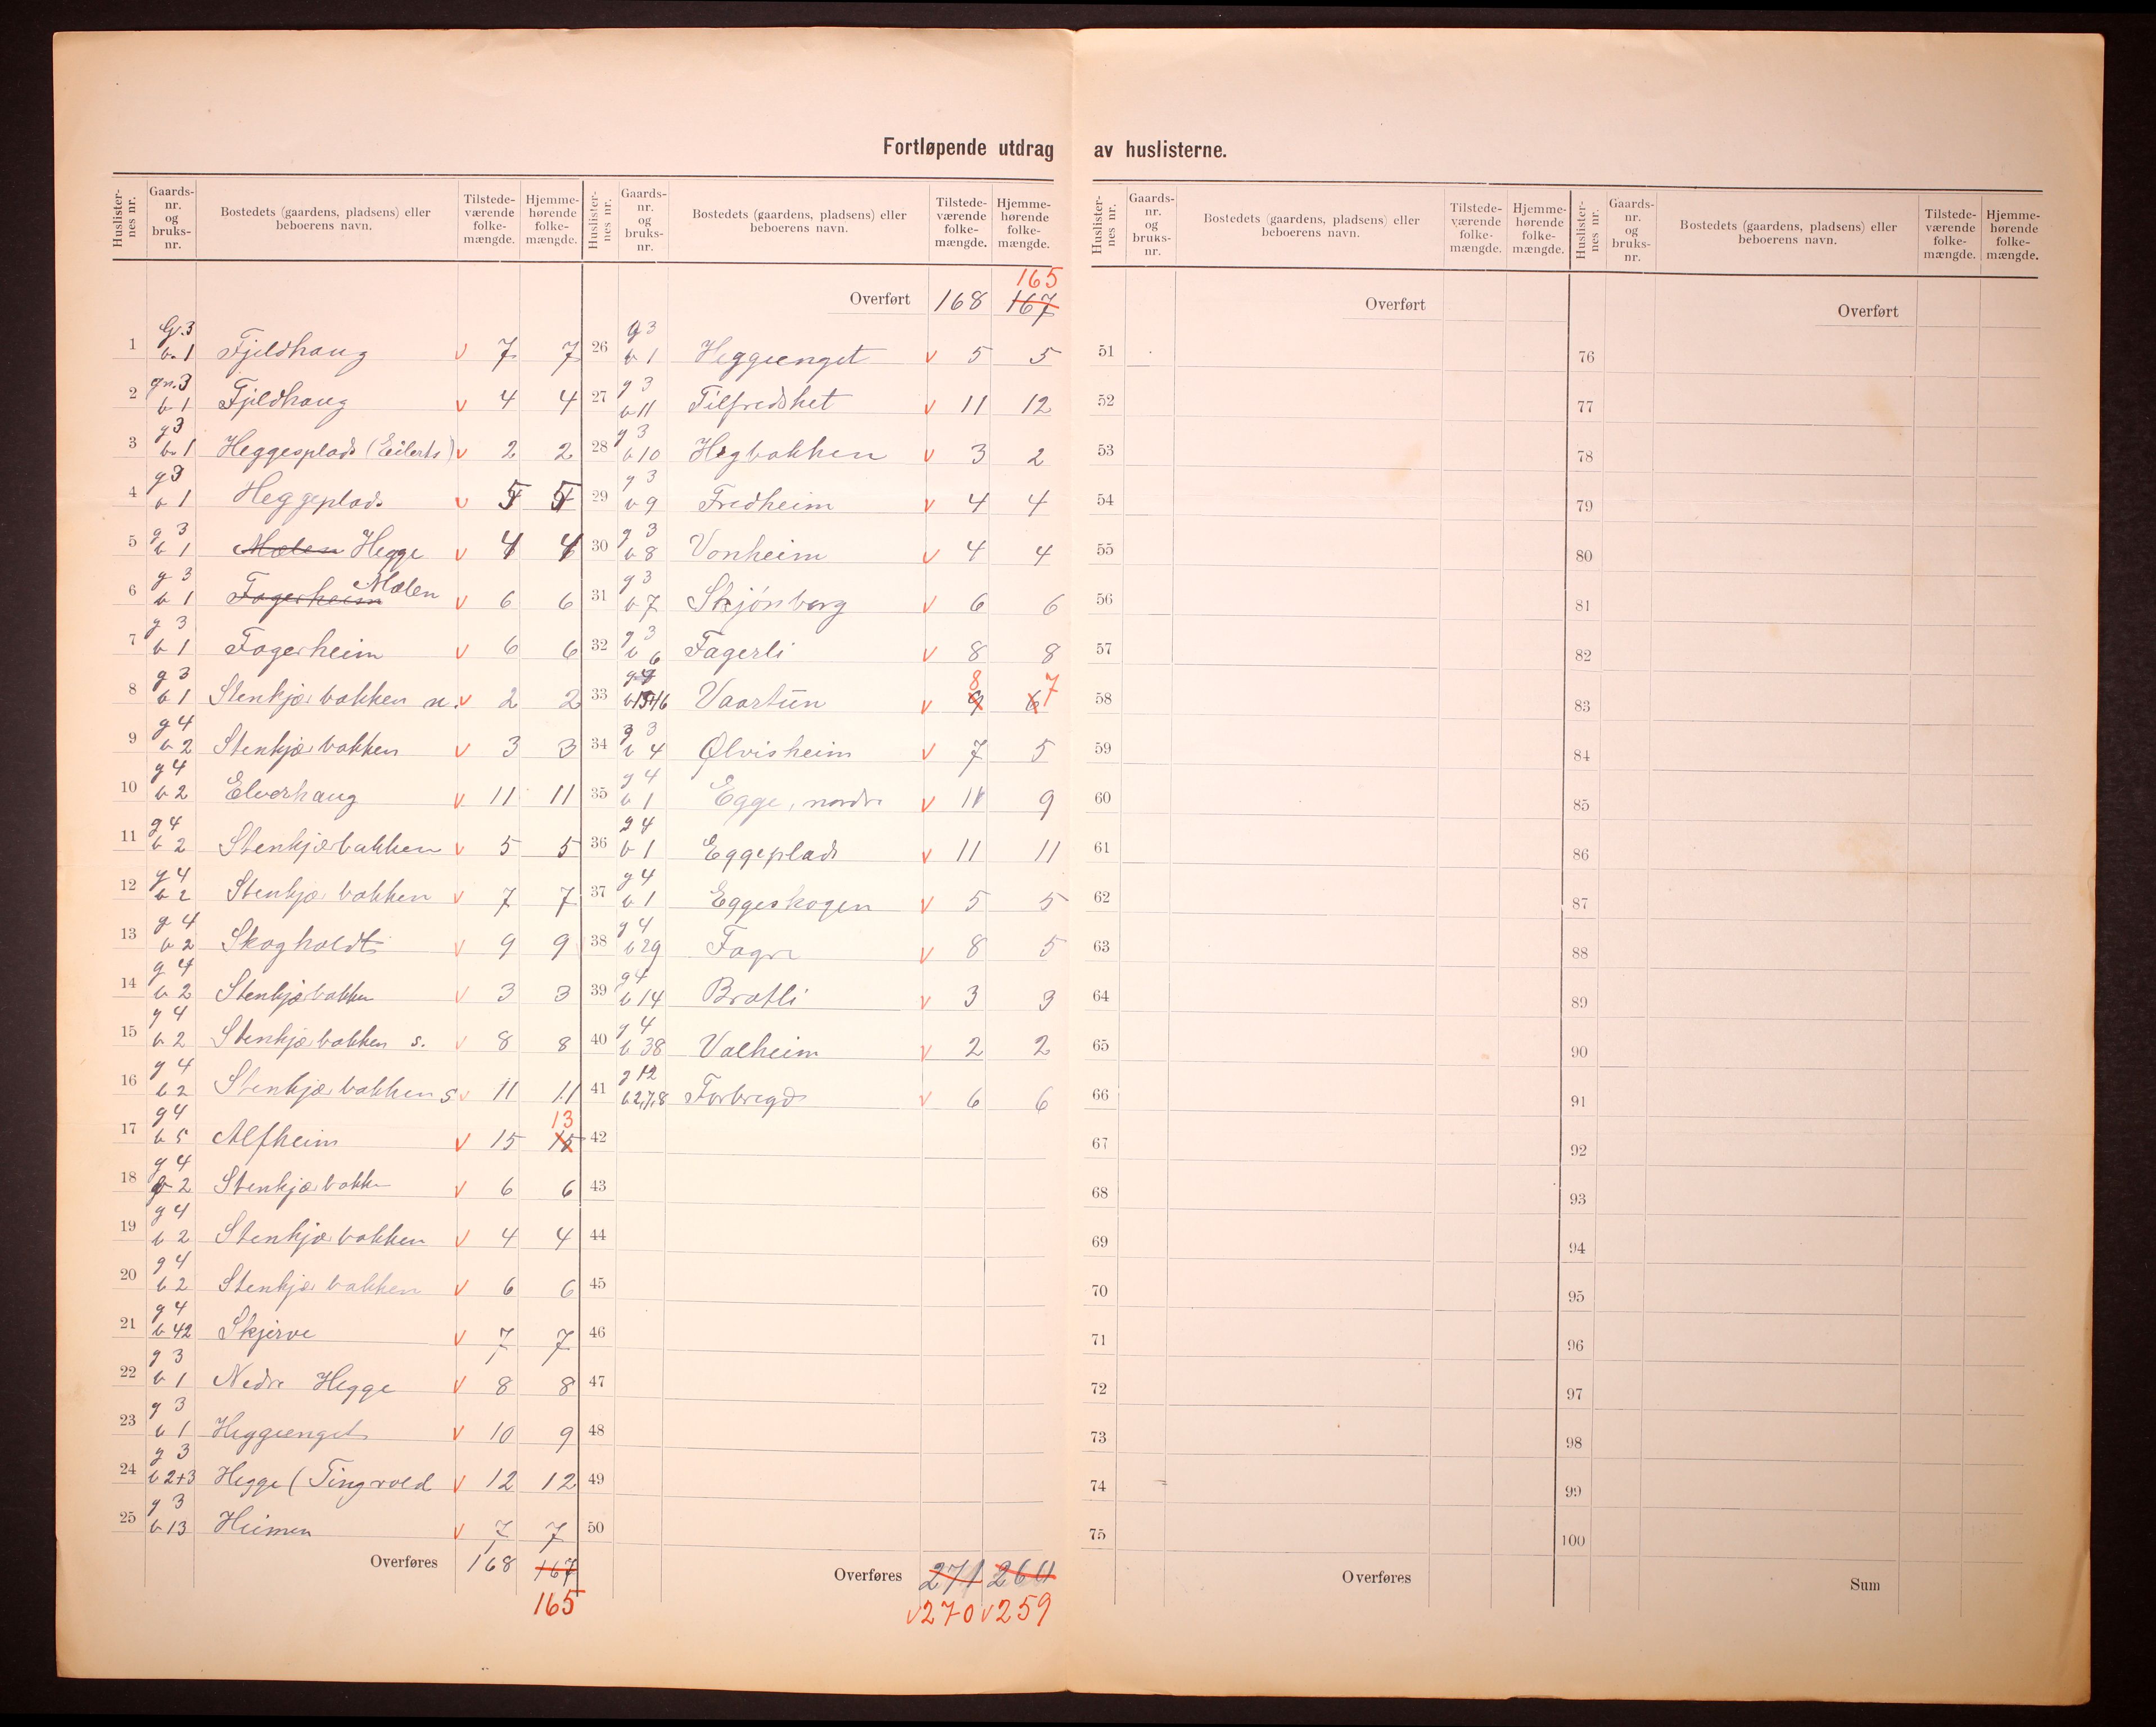 Fortløpende utdrag av huslisterne.
Huslister-nes nr. Gaards-nr. og bruks-nr. Bostedets (gaardens, pladsens) eller beboerens navn. Tilstede-værende folke-mængde. Hjemme-hørende folke-mængde.
1 G.3 b.1 Fjeldhaug v 7 7
2 gn.3 b 1 Fjeldhaug v 4 4
3 g 3 b.1 Heggesplads (Eilerts) v 2 2
4 g 3 b 1 Heggeplads v 5 5
5 g 3 b 1 Mælen Hegge v 4 4
6 g 3 b 1 Fagerheim Mælen v 6 6
7 g 3 b 1 Fagerheim v 6 6
8 g 3 b 1 Stenkjærbakken n. v 2 2
9 g 4 b 2 Stenkjærbakken v 3 3
10 g 4 b 2 Elverhaug v 11 11
11 g 4 b 2 Stenkjærbakken v 5 5
12 g 4 b 2 Stenkjærbakken v 7 7
13 g 4 b 2 Skogholdt v 9 9
14 g 4 b 2 Stenkjærbakken v 3 3
15 g 4 b 2 Stenkjærbakken s. v 8 8
16 g 4 b 2 Stenkjærbakken s v 11 11
17 g 4 b 5 Alfheim v 15 15 13
18 g 4 b 2 Stenkjærbakken v 6 6
19 g 4 b 2 Stenkjærbakken v 4 4
20 g 4 b 2 Stenkjærbakken v 6 6
21 g 4 b 42 Skjerve v 7 7
22 g 3 b 1 Nedre Hegge v 8 8
23 g 3 b 1 Heggeenget v 10 9
24 g 3 b 2+3 Hegge (Tingvold v 12 12
25 g 3 b 13 Heimen v 7 7
Overføres 168 167
165
Huslister-nes nr. Gaards-nr. og bruks-nr. Bostedets (gaardens, pladsens) eller beboerens navn. Tilstede-værende folke-mængde. Hjemme-hørende folke-mængde.
165
Overført 168 167
26 g 3 b 1 Heggeenget v 5 5
27 g 3 b 11 Tilfredshet v 11 12
28 g 3 b 10 Hegbakken v 3 2
29 g 3 b 9 Fredheim v 4 4
30 g 3 b 8 Vonheim v 4 4
31 g 3 b 7 Skjónberg v 6 6
32 g 3 b 6 Fagerli v 8 8
33 Vaartun v 8 6 7
34 g 3 b 4 Ølvisheim v 7 5
35 g 4 b 1 Egge, nordre v 11 9
36 g 4 b 1 Eggeplads v 11 11
37 g 4 b 1 Eggeskogen v 5 5
38 g 4 b 29 Fagre v 8 5
39 g 4 b 14 Bratli v 3 3
40 g 4 b 38 Valheim v 2 2
41 g 12 b 2,7,8 Forbregd v 6 6
42
43
44
45
46
47
48
49
50
Overføres 271 260
v 270 v 259
Huslister-nes nr. Gaards-nr. og bruks-nr. Bostedets (gaardens, pladsens) eller beboerens navn. Tilstede-værende folke-mængde. Hjemme-hørende folke-mængde.
Overført
51
52
53
54
55
56
57
58
59
60
61
62
63
64
65
66
67
68
69
70
71
72
73
74
75
Overføres
Huslister-nes nr. Gaards-nr. og bruks-nr. Bostedets (gaardens, pladsens) eller beboerens navn. Tilstede-værende folke-mængde. Hjemme-hørende folke-mængde.
Overført
76
77
78
79
80
81
82
83
84
85
86
87
88
89
90
91
92
93
94
95
96
97
98
99
100
Sum